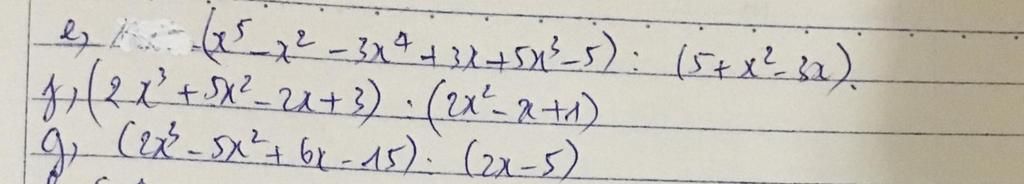 e, (x⁵ - x² - 3x⁴ + 3x + 5x³ - 5) : (5 + x² - 3x).
f, (2x³ + 5x² - 2x + 3) : (2x² - x + 1)
g, (2x³ - 5x² + 6x - 15) : (2x - 5)